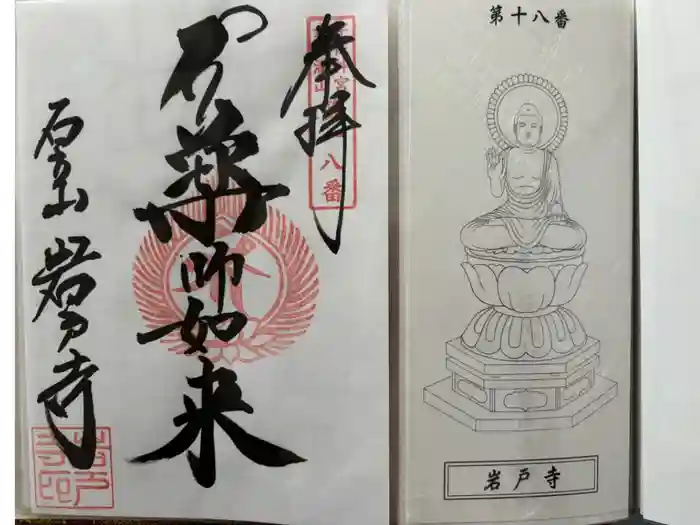 奉拝
八番
薬師如来
石立山 岩戸寺
岩戸寺印
第十八番
岩戸寺